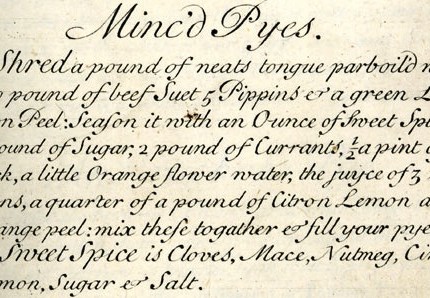 Minc'd Pyes.
Shred a pound of neats tongue parboil'd
pound of beef Suet 5 Pippins & a green
Peel: Season it with an Ounce of Sweet
of Sugar, 2 pound of Currants, ½ a pint
a little Orange flower water, the juyce of 3
a quarter of a pound of Citron Lemon
peel: mix these togather & fill your pye
Sweet Spice is Cloves, Mace, Nutmeg,
Sugar & Salt.